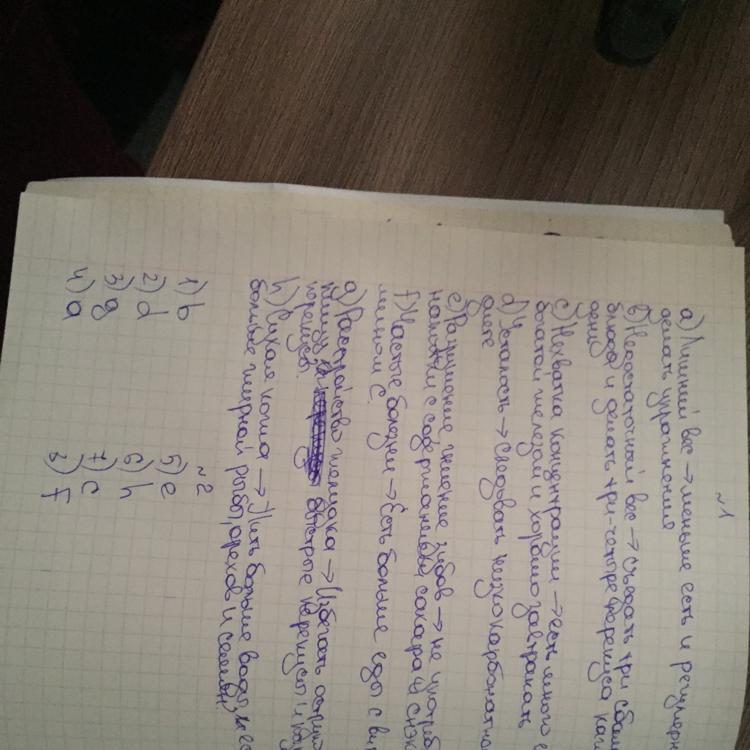 №1
а) Лишний вес → меньше есть и регулярн
делать упражнения
в) Недостаточный вес → съедать три сбал
блюда и делать три-четыре перекуса каж
день
с) Нехватка концентрации → есть много
богатой железом и хорошо завтракать
d) Усталость → следовать низкокарбонатно
диете
е) Разрушение зубов → не употреб
напитки с содержанием сахара и снэк
f) Частые болезни → Есть больше еды с ви
мином С.
g) Расстройство желудка → Избегать остр
пищу быстрые перекусы и
перекусы.
h) Сухая кожа → Пить больше воды, есть
больше жирной рыбы, орехов и семян
№2
1) b
2) d
3) g
4) a
5) e
6) h
7) c
8) F